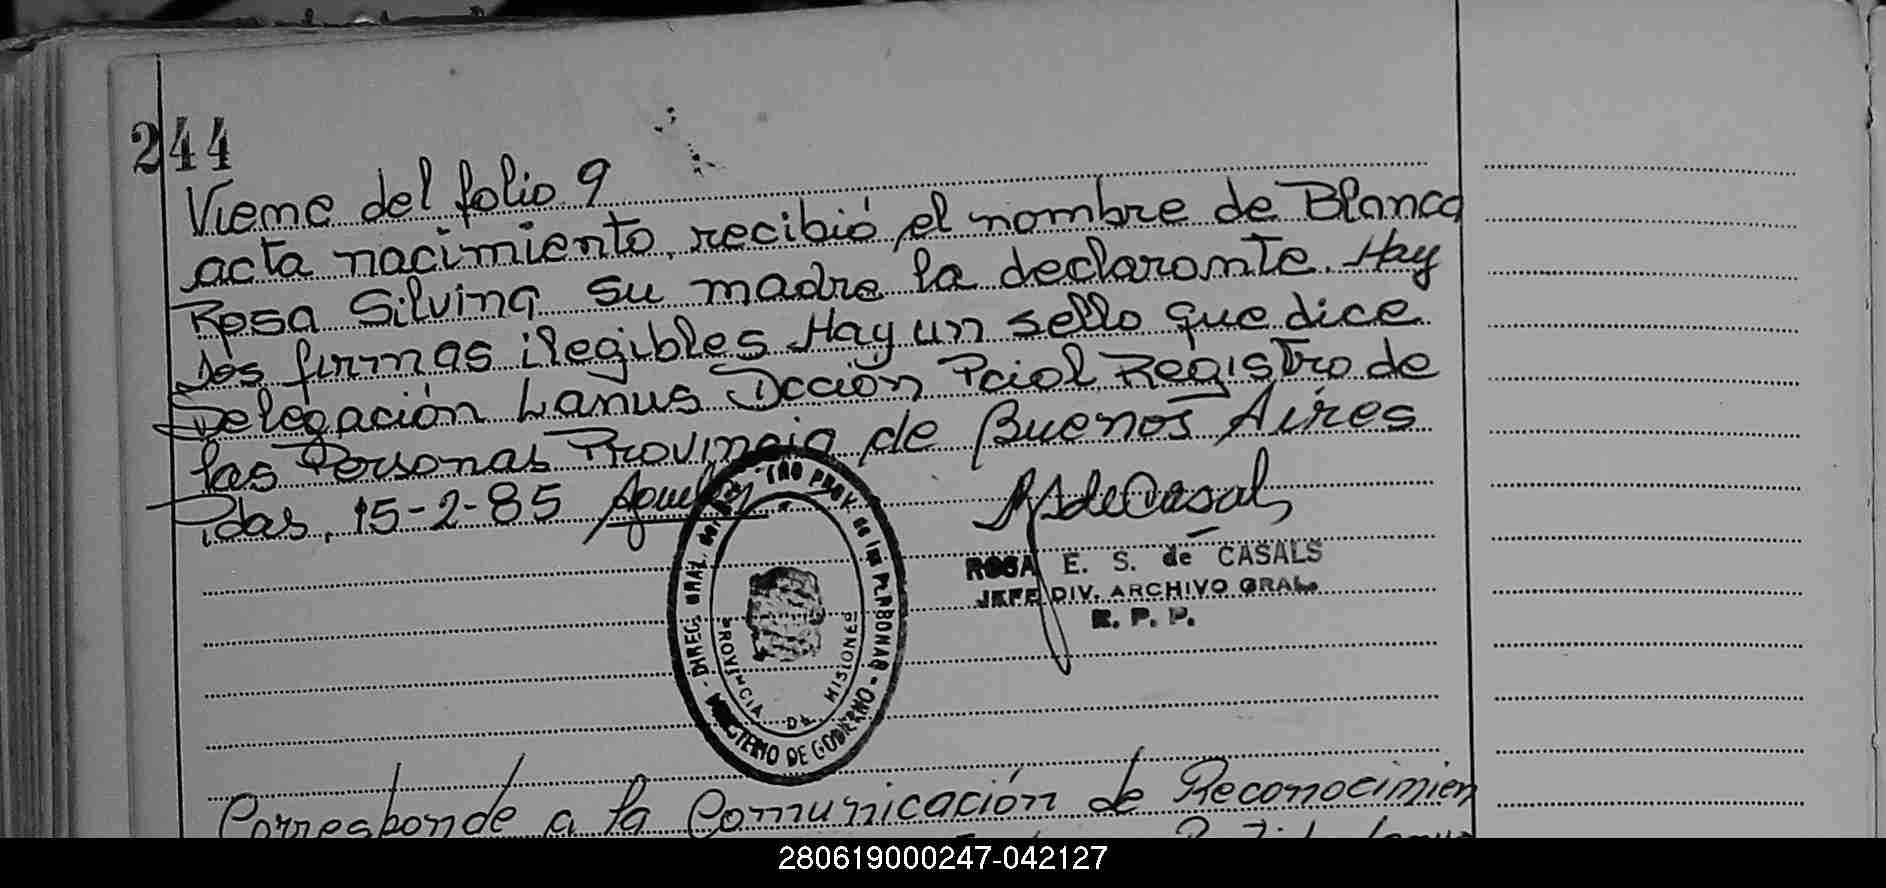 244
Viene del folio 9
acta nacimiento, recibió el nombre de Blanca
Rosa Silvina su madre la declarante. Hay
dos firmas ilegibles Hay un sello que dice
Delegación Lanús Dcción Pcial Registro de
las Personas Provincia de Buenos Aires
Pdas, 15-2-85
ROSA E. S. de CASALS
JEFE DIV. ARCHIVO GRAL.
R. P. P.
DIREC. GRAL. del PROV. de las PERSONAS - MINISTERIO DE GOBIERNO -
PROVINCIA DE MISIONES
Corresponde a la Comunicación de Reconocimien
280619000247-042127